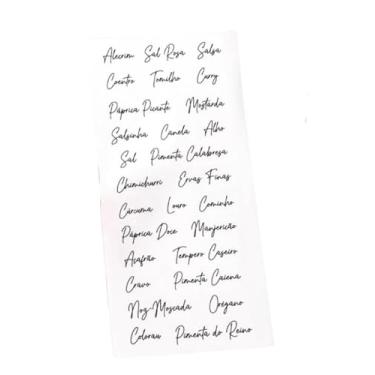 Alecrim Sal Rosa Salsa
Coentro Tomilho Curry
Páprica Picante Mostarda
Salsinha Canela Alho
Sal Pimenta Calabresa
Chimichurri Ervas Finas
Cúrcuma Louro Cominho
Páprica Doce Manjericão
Açafrão Tempero Caseiro
Cravo Pimenta Caiena
Noz-Moscada Orégano
Colorau Pimenta do Reino